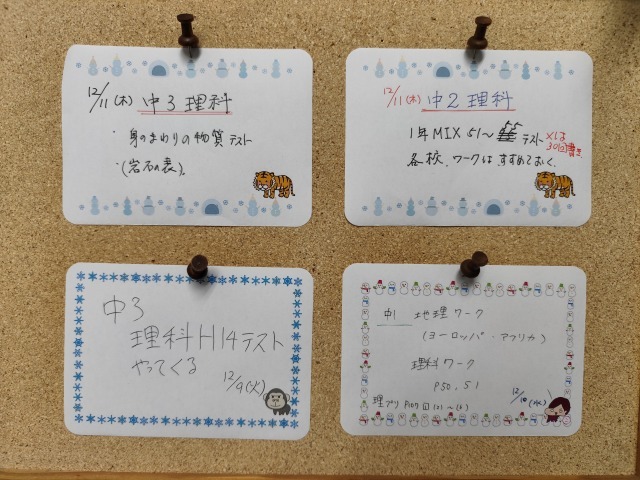 12/11(木) 中3 理科
・身のまわりの物質 テスト
・(岩石の表)。
12/11(木) 中2 理科
1年MIX 51〜55 テスト ×は
30回書き
各校、ワークは すすめておく。
中3
理科 H14テスト
やってくる
12/9(火)
中1 地理ワーク
(ヨーロッパ・アフリカ)
理科ワーク
P50、51
理プリ P107 (2)〜(6)
12/10(水)